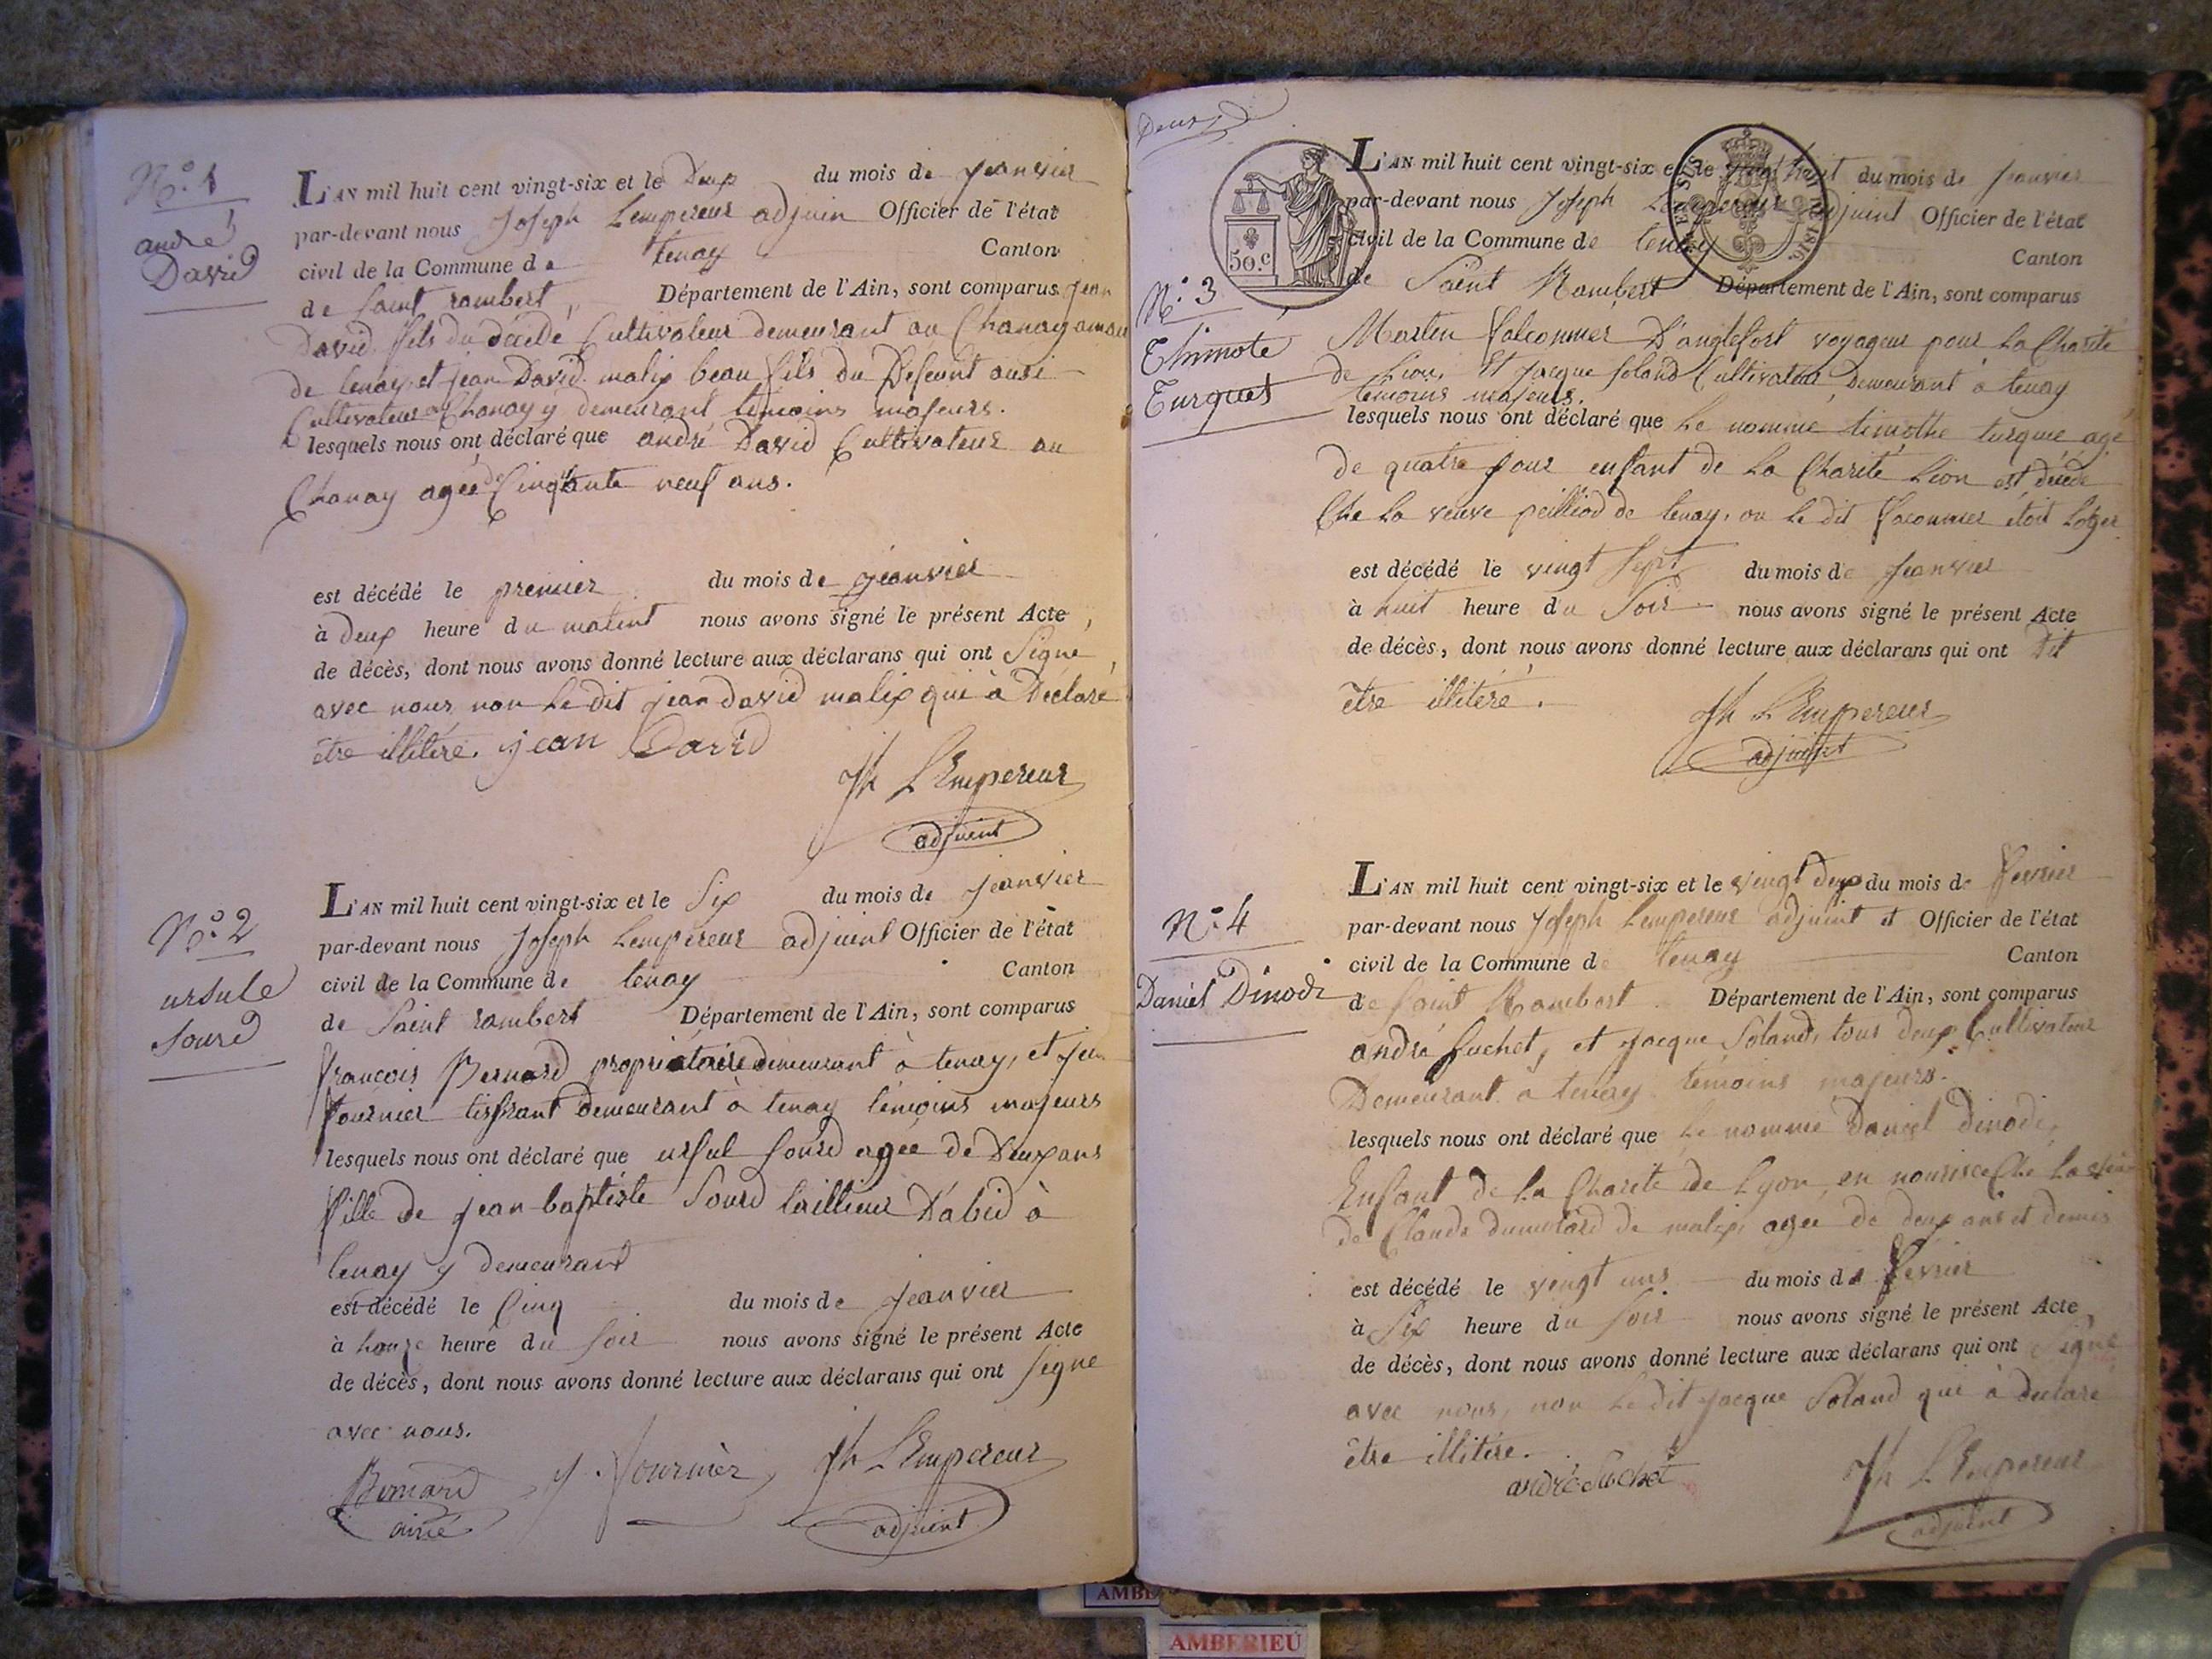 N.o 1
andré
David
L'AN mil huit cent vingt-six et le Deux du mois de jeanvier
par-devant nous Joseph Lempereur adjuin Officier de l'état
civil de la Commune de tenay Canton
de Saint rambert, Département de l'Ain, sont comparus jean
David fils du décédé Cultivateur demeurant au Chanay
de tenay et jean David malix beau fils du Defeunt ausi
Cultivateur Chanay y demeurant témoins majeurs.
lesquels nous ont déclaré que andré David Cultivateur au
Chanay agée de Cinquante neuf ans.
est décédé le premier du mois de jeanvier
à deux heure du matint nous avons signé le présent Acte,
de décès, dont nous avons donné lecture aux déclarans qui ont Signé,
avec nous, non Le dit jean david malix qui à Déclaré
être illitéré. jean David
Jh LEmpereur
adjuent
N.o 2
ursule
Sourd
L'AN mil huit cent vingt-six et le Six du mois de jeanvier
par-devant nous Joseph Lempereur adjuint Officier de l'état
civil de la Commune de tenay Canton
de Saint rambert Département de l'Ain, sont comparus
françois Bernard propriétaire demeurant à tenay, et
fournier tissrant demeurant à tenay témoins majeurs
lesquels nous ont déclaré que ursul Sourd agée de Deux ans
fille de jean baptiste Sourd taillieur D'abid à
tenay y demeurant
est décédé le Cinq du mois de jeanvier
à honze heure du Soir nous avons signé le présent Acte
de décès, dont nous avons donné lecture aux déclarans qui ont Signe
avec nous.
Bernard J. fournier, Jh LEmpereur
ainé adjuint
Deux
50.c
L'AN mil huit cent vingt-six et le vingt huit du mois de jeanvier
par-devant nous Joseph Lempereur adjuint Officier de l'état
civil de la Commune de tenay Canton
de Saint Rambert Département de l'Ain, sont comparus
N.o 3
Thimoté
Turques
Martin falconnier D'anglefort voyageur pour La Charité
de Lion, Et Jacque Soland Cultivateur, Demeurant à tenay
témoins majeurs.
lesquels nous ont déclaré que Le nommé timothe turque agé
de quatre jour enfant de La Charité Lion est décédé
Che La veuve peilliod de tenay, ou Le dit faconnier étoit Loger
est décédé le vingt Sept du mois de jeanvier
à huit heure du Soir nous avons signé le présent Acte
de décès, dont nous avons donné lecture aux déclarans qui ont Dit
être illitéré.
Jh LEmpereur
adjuint
N.o 4
Daniel Dinodi
L'AN mil huit cent vingt-six et le vingt deux du mois de fevrier
par-devant nous Joseph Lempereur adjuint et Officier de l'état
civil de la Commune de tenay Canton
de Saint Rambert Département de l'Ain, sont comparus
andré Suchet, et Jacque Soland, tous deux Cultivateur
Demeurant à tenay témoins majeurs.
lesquels nous ont déclaré que Le nommé Daniel Dinodi,
Enfant de La Charité de Lyon, en nourisce Che La
de Claude dumolard de malix, agée de deux ans et demis
est décédé le vingt uns du mois de fevrier
à Six heure du Soir nous avons signé le présent Acte
de décès, dont nous avons donné lecture aux déclarans qui ont signé
avec nous, non Le dit Jacque Soland qui à declaré
être illitére.
andré Suchet Jh LEmpereur
adjuint
AMBERIEU